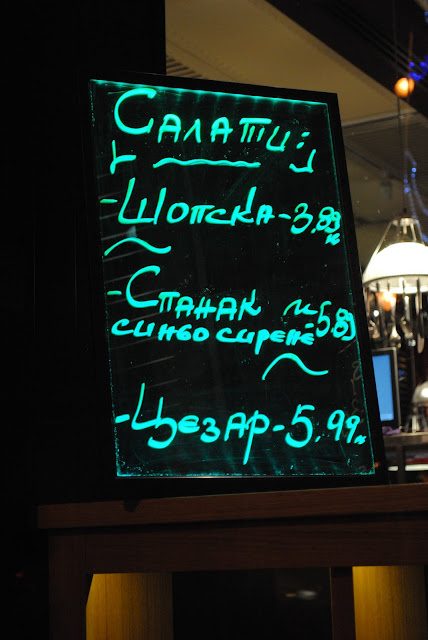 Салати:
- Шопска - 3.89
- Спанак и
синьо сирене - 5.89
- Цезар - 5.99